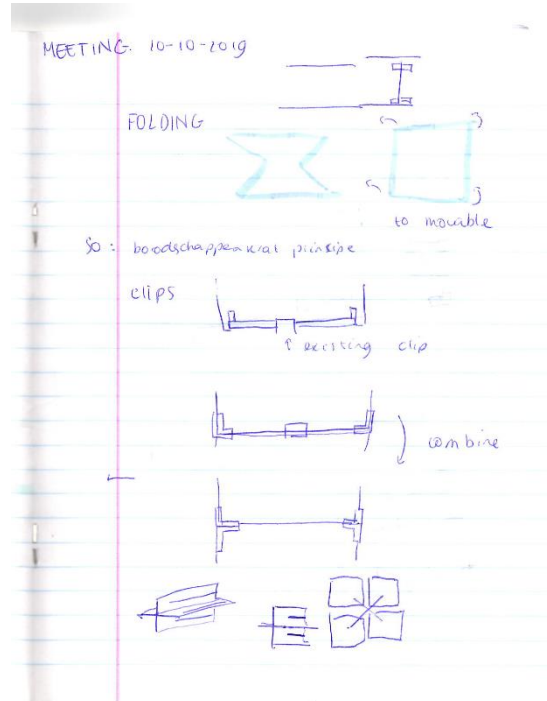 MEETING. 10-10-2019
FOLDING
to movable
So : boodschappenkrat prinsipe
clips
existing clip
combine